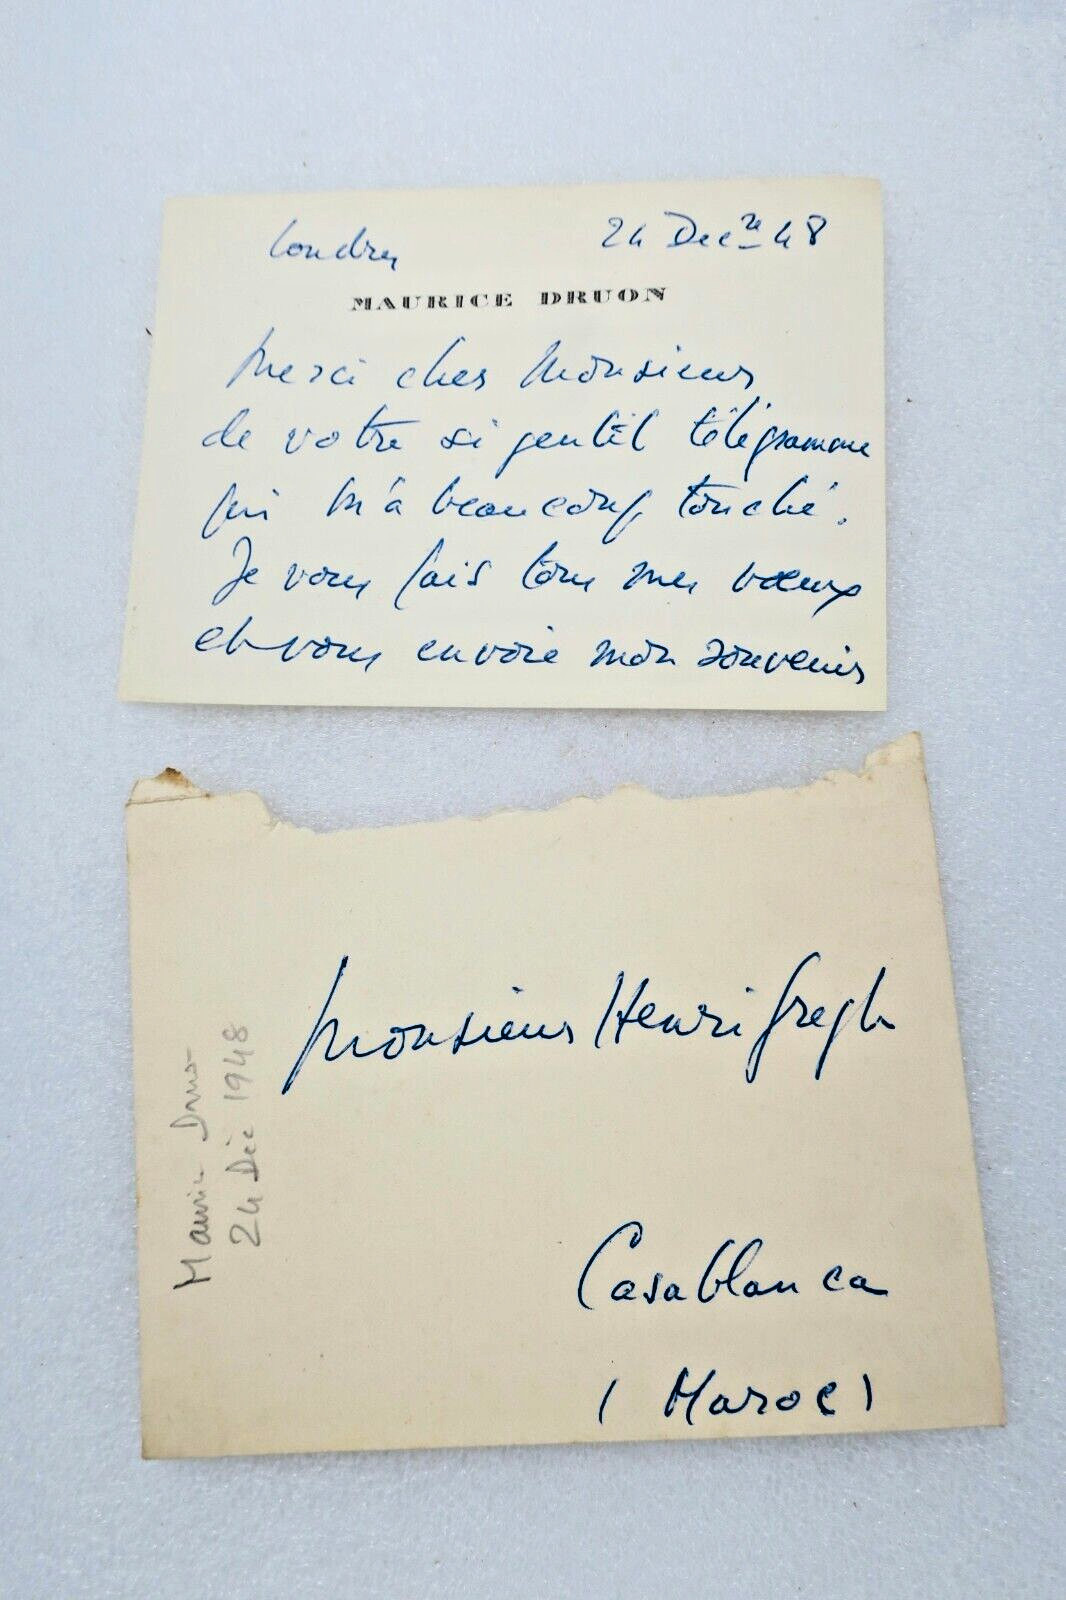 Londres 24 Dec re 48
MAURICE DRUON
Merci cher Monsieur
de votre si gentil télégramme
qui m'a beaucoup touché.
Je vous fais tous mes vœux
et vous envoie mon souvenir
Monsieur Henri Gregh
Casablanca
(Maroc)
Maurice Druon
24 Déc 1948